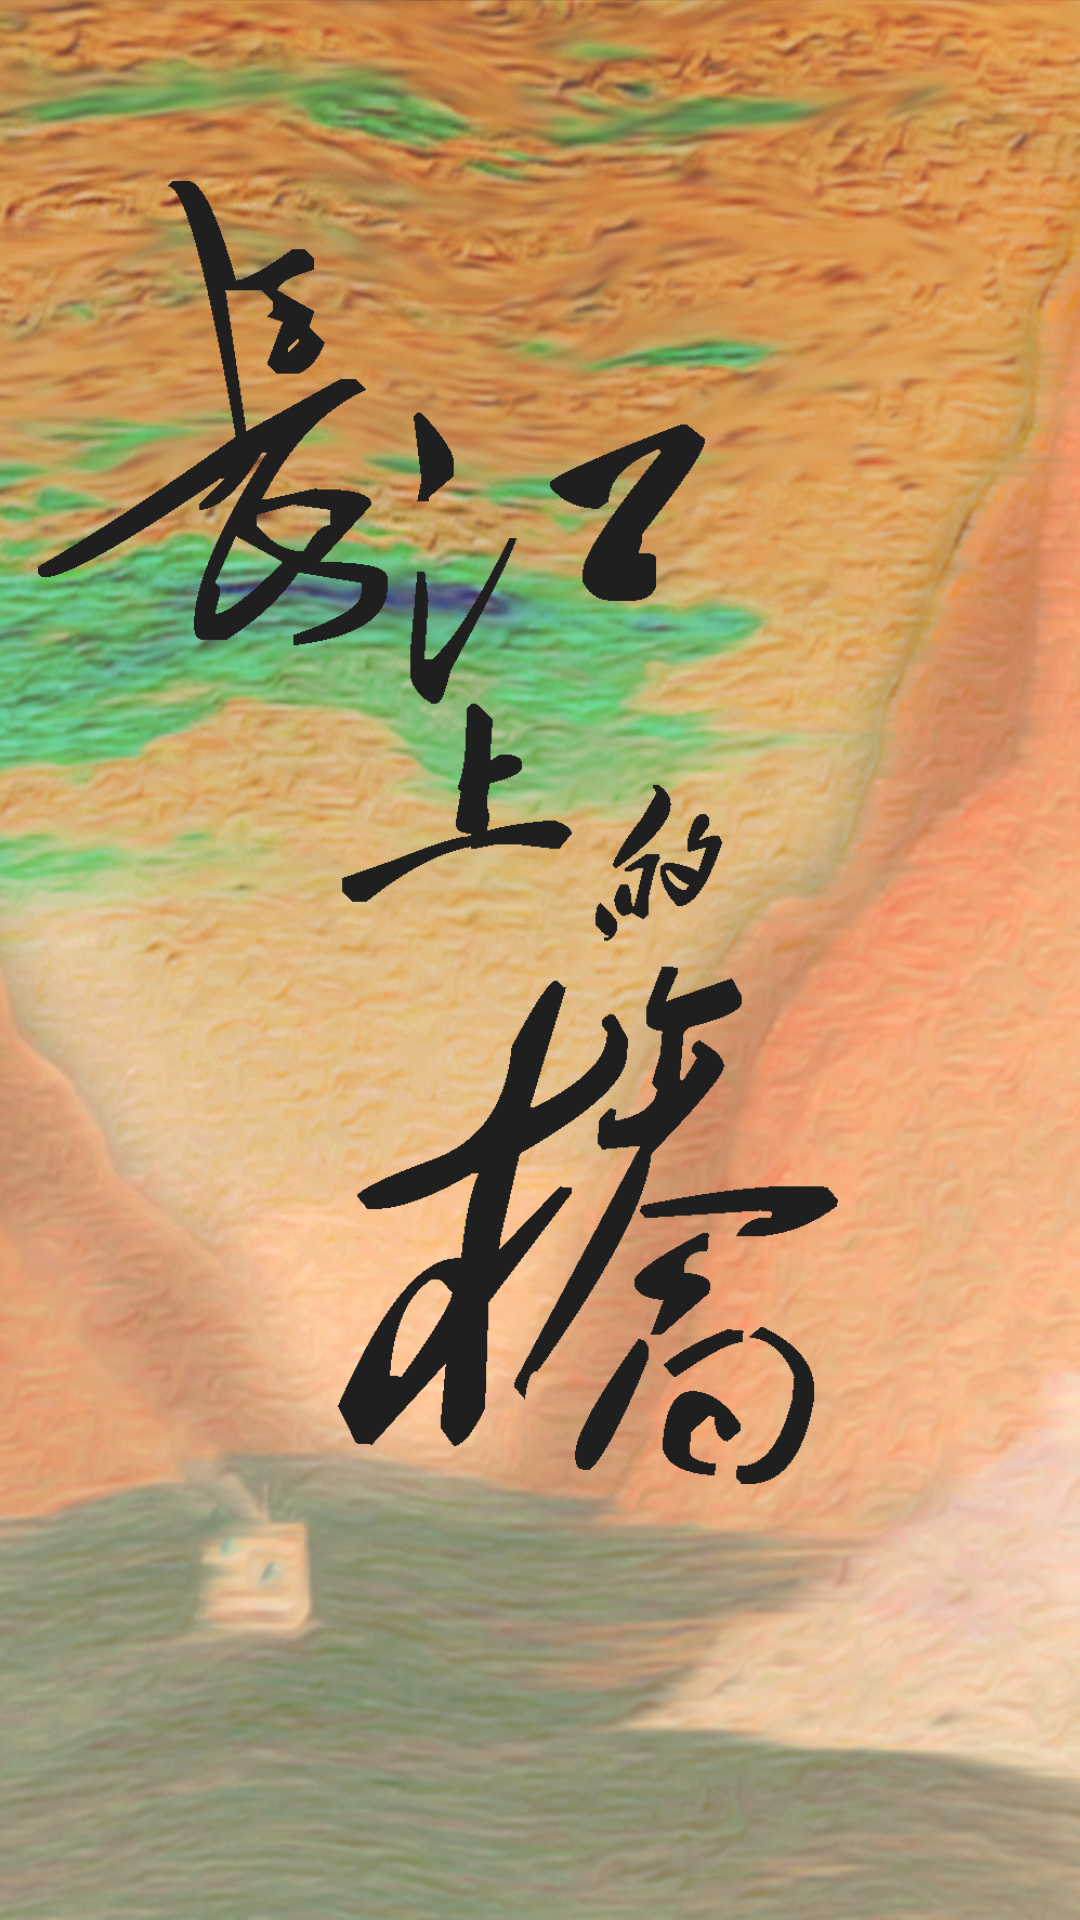 長江
上的
橋